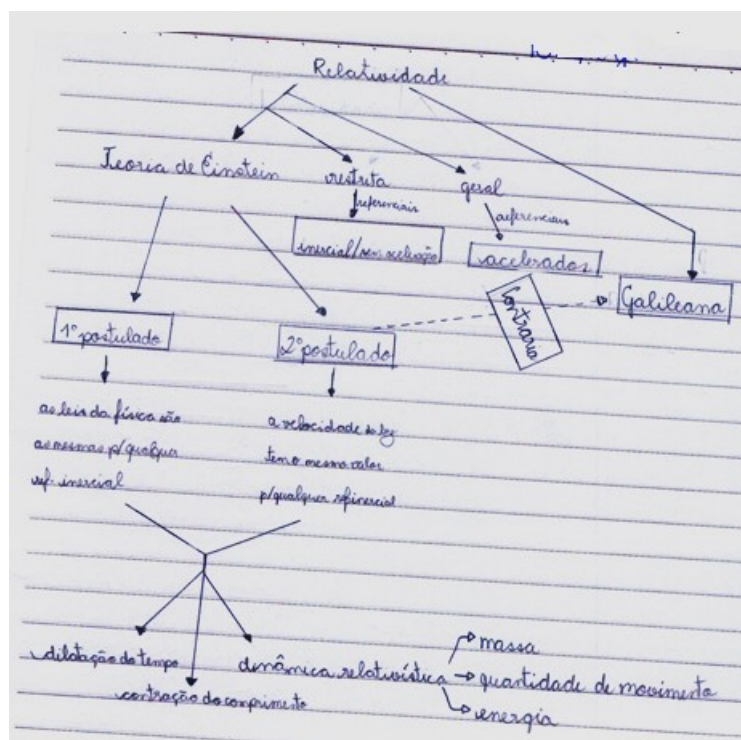 Relatividade
Teoria de Einstein
restrita
geral
referenciais
referenciais
inercial/sem aceleração
acelerados
Galileana
Contraria
1º postulado
2º postulado
as leis da física são
as mesmas p/ qualquer
ref. inercial
a velocidade da luz
tem o mesmo valor
p/ qualquer ref inercial
dilatação do tempo
contração do comprimento
dinâmica relativística
massa
quantidade de movimento
energia